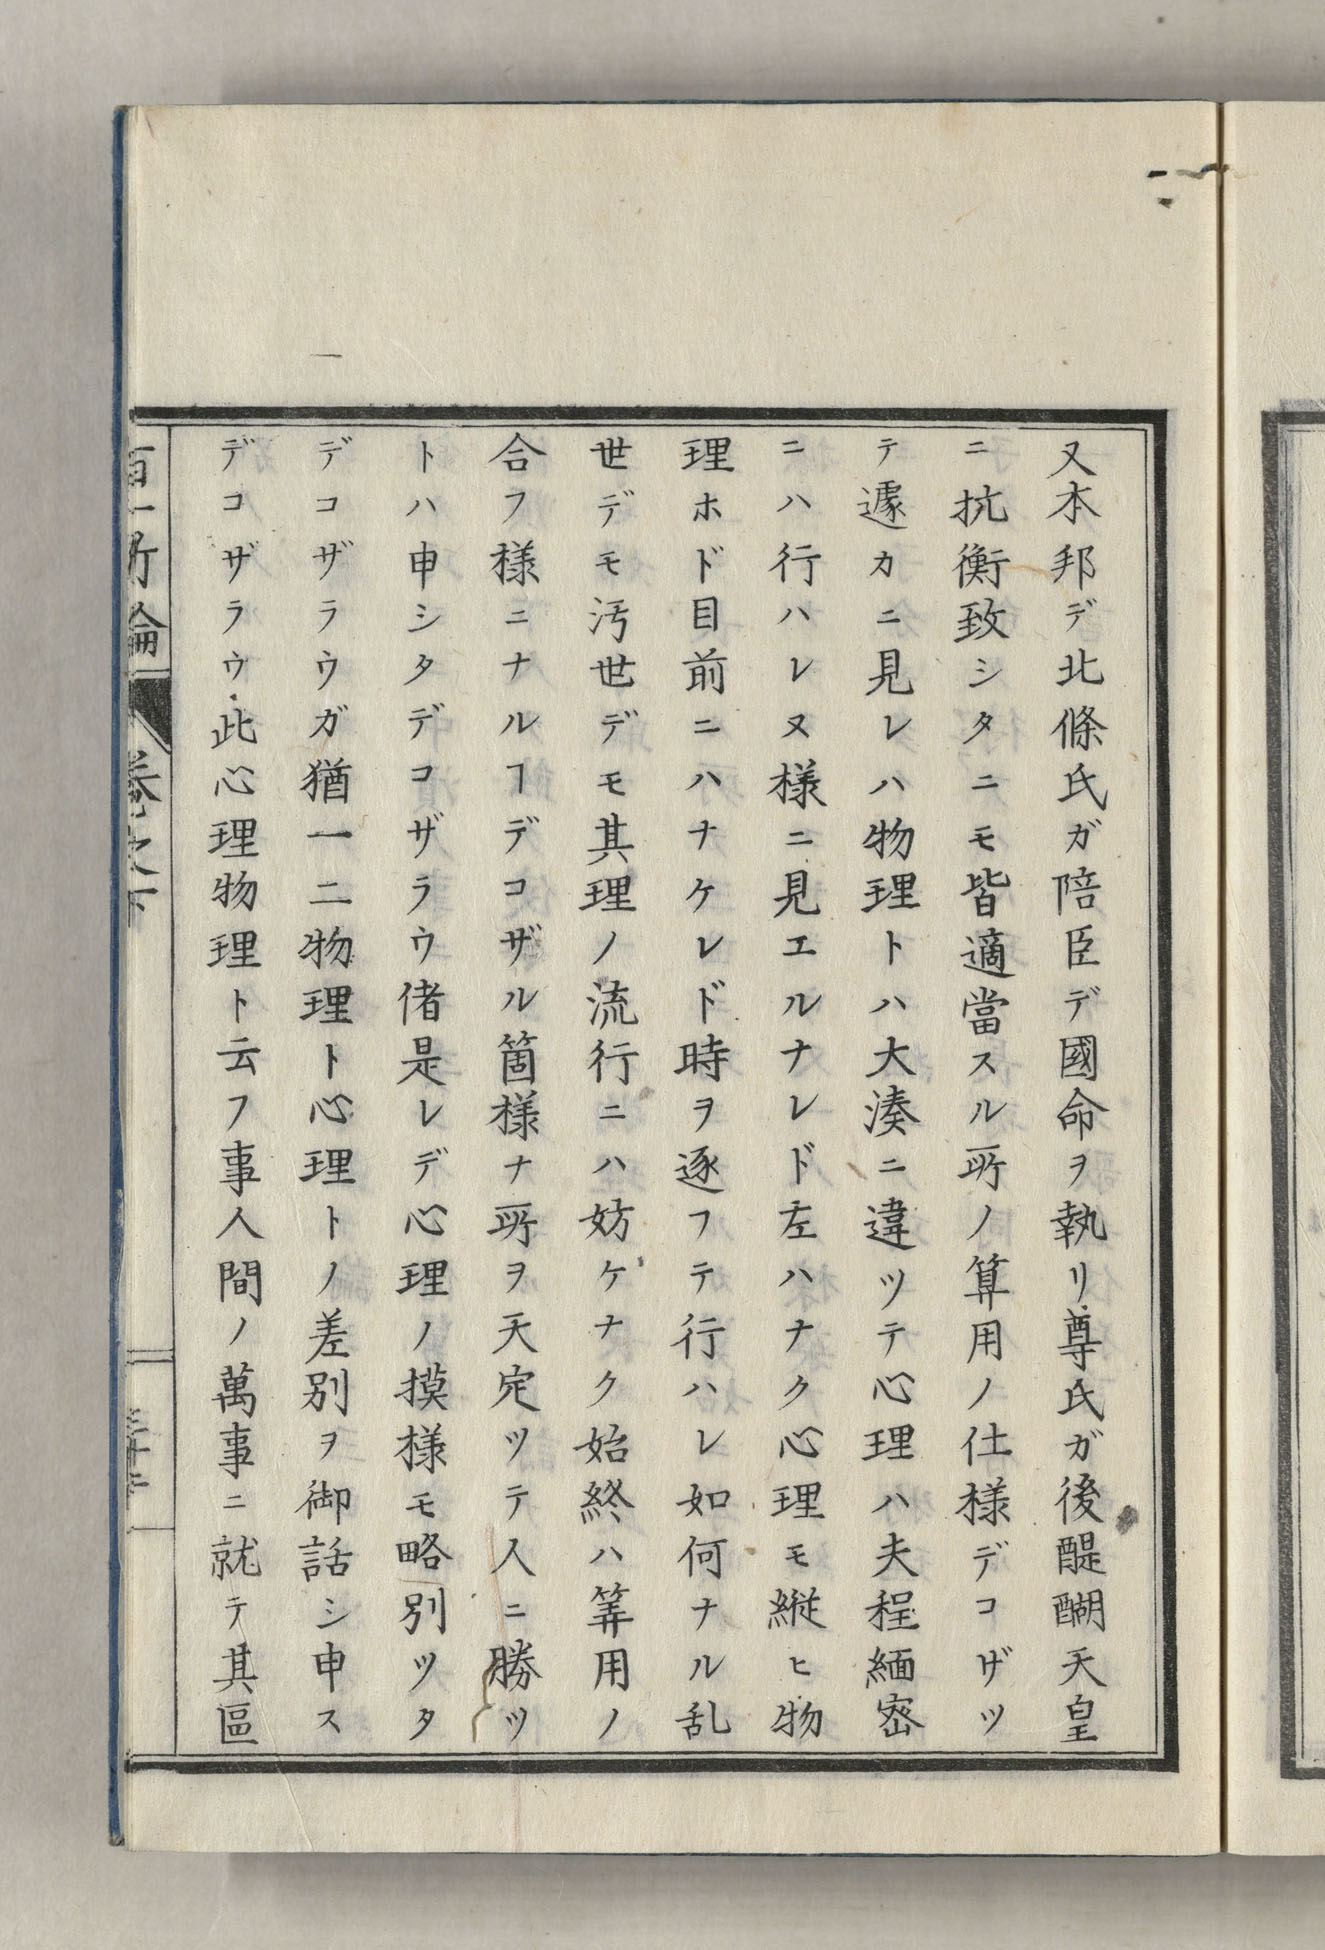 又本邦デ北條氏ガ陪臣デ國命ヲ執リ尊氏ガ後醍醐天皇
ニ抗衡致シタニモ皆適當スル所ノ算用ノ仕様デコザツ
テ遽カニ見レハ物理トハ大湊ニ違ツテ心理ハ夫程緬密
ニハ行ハレヌ様ニ見エルナレド左ハナク心理モ縦ヒ物
理ホド目前ニハナケレド時ヲ逐フテ行ハレ如何ナル乱
世デモ汚世デモ其理ノ流行ニハ妨ケナク始終ハ筭用ノ
合フ様ニナルヿデコザル箇様ナ所ヲ天定ツテ人ニ勝ツ
トハ申シタデコザラウ偖是レデ心理ノ摸様モ略別ツタ
デコザラウガ猶一二物理ト心理トノ差別ヲ御話シ申ス
デコザラウ此心理物理ト云フ事人間ノ萬事ニ就テ其區
百一新論 卷之下